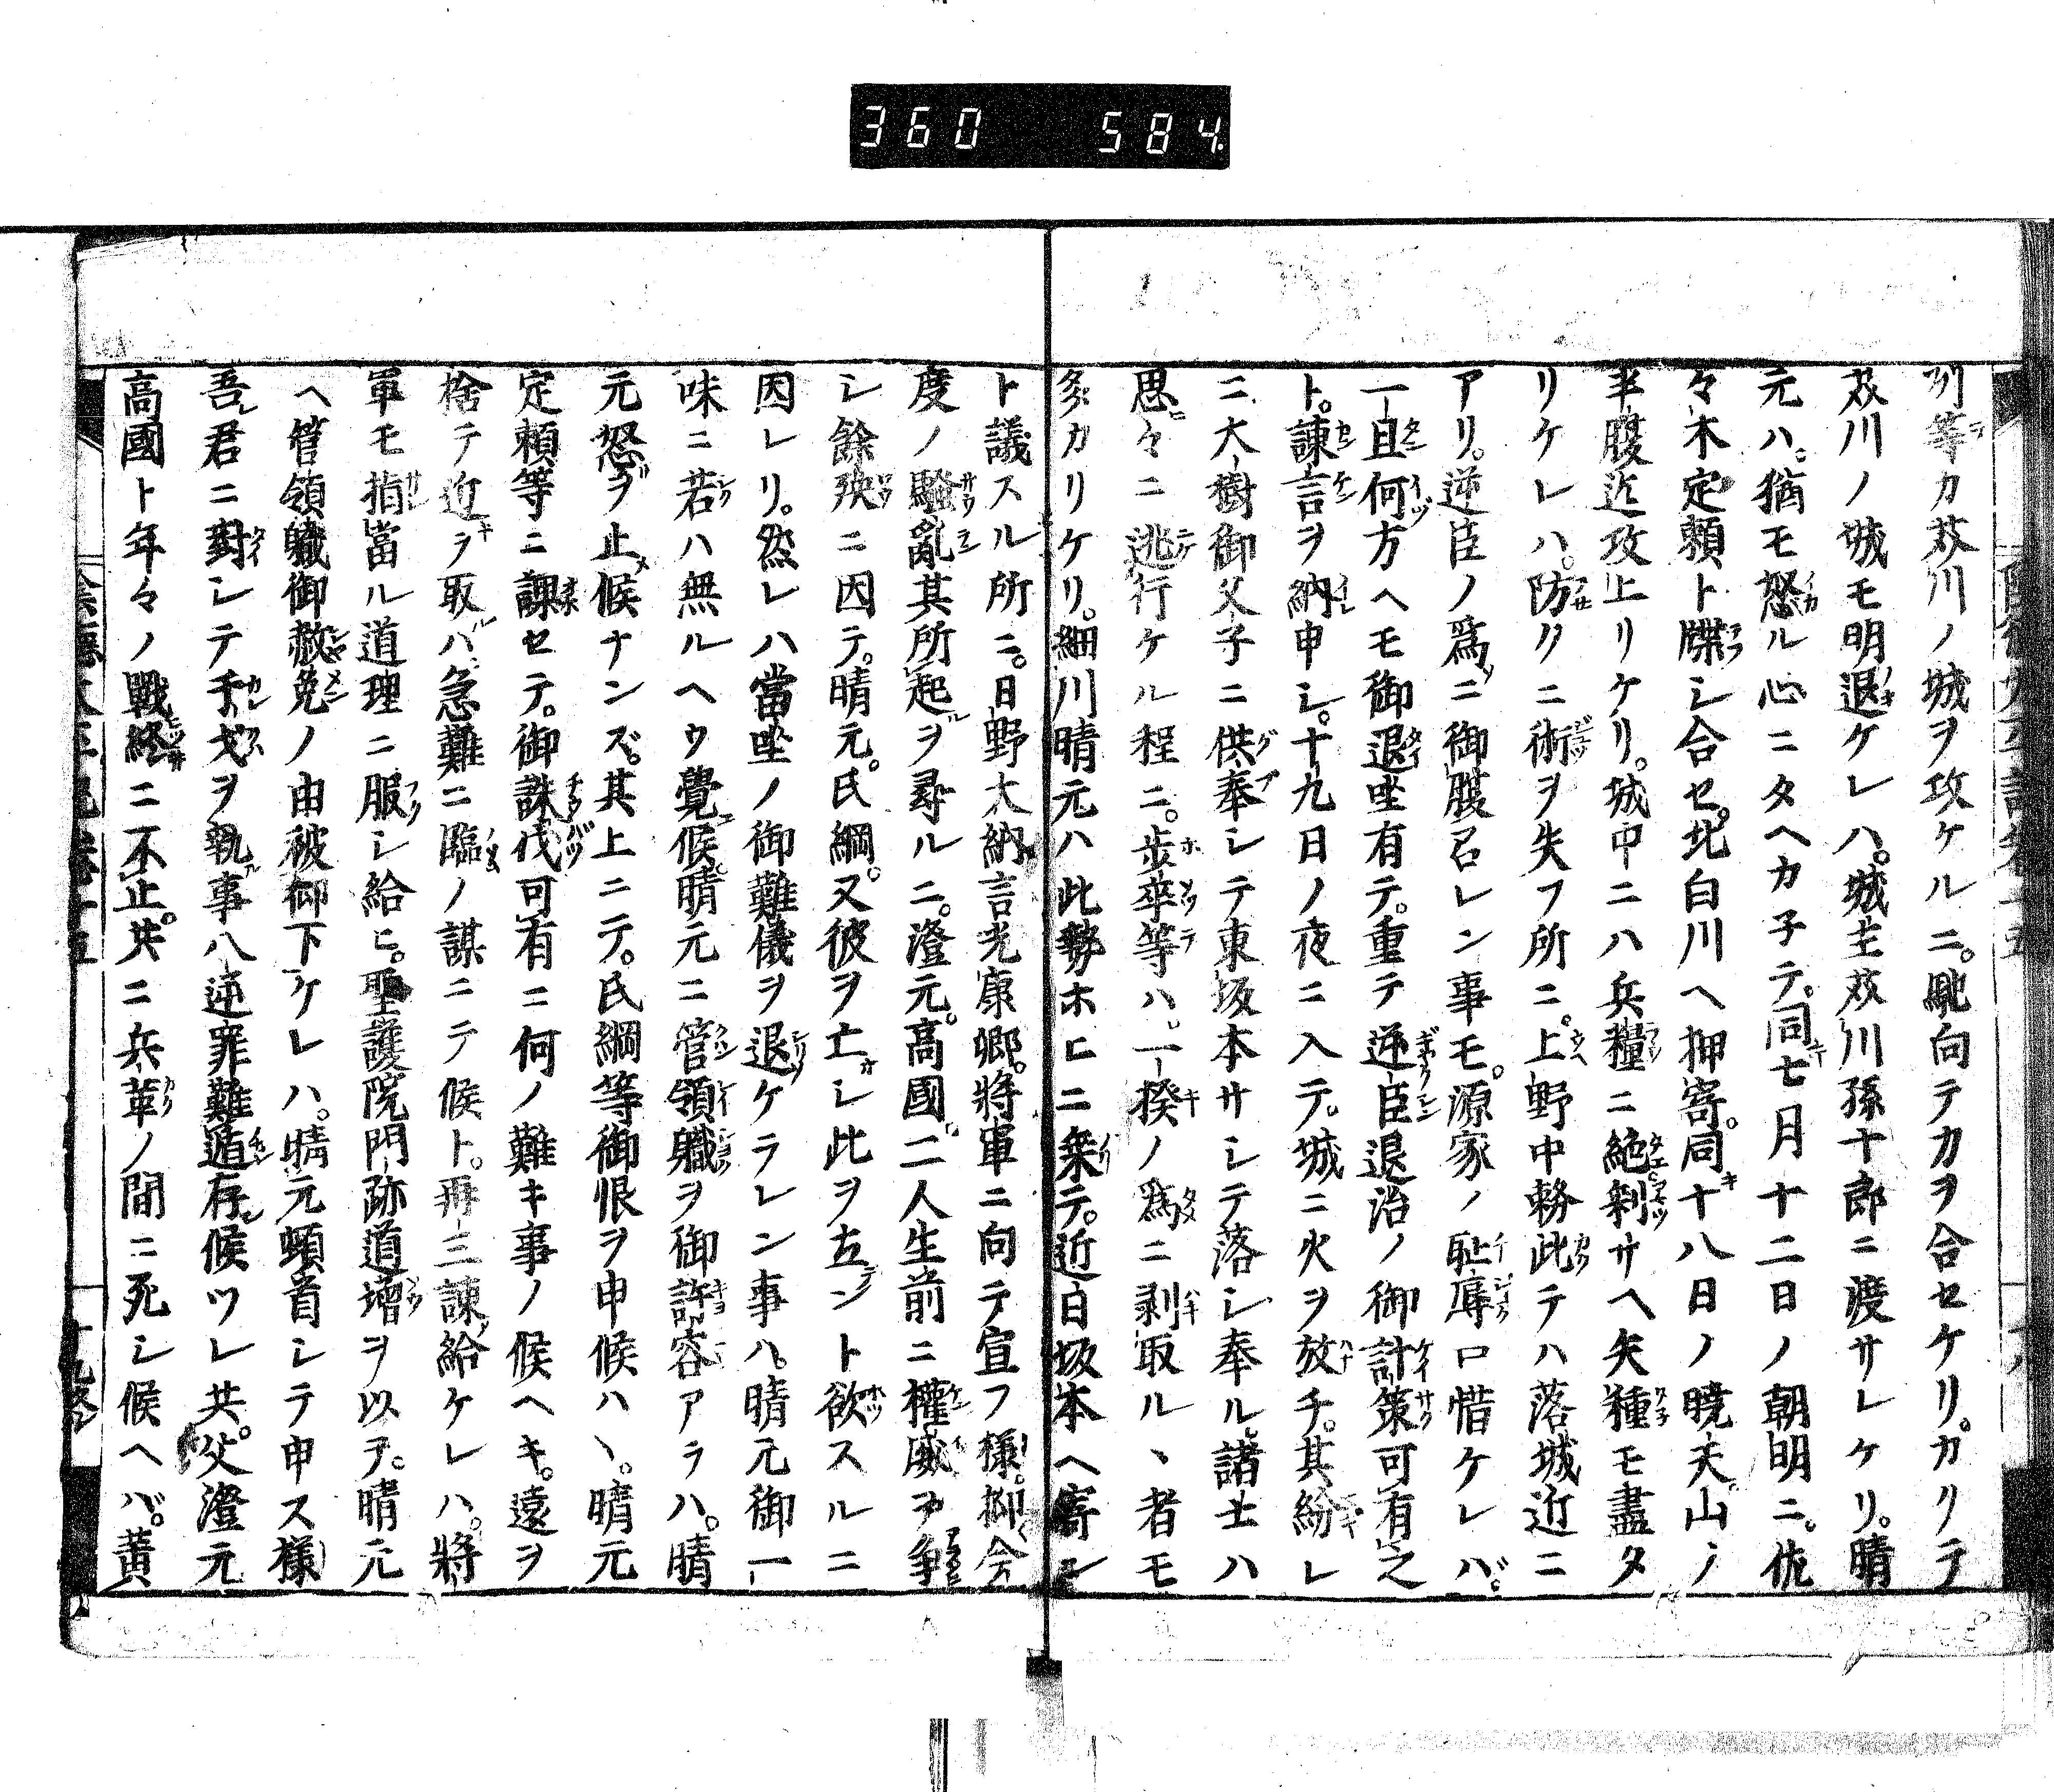 360 584
列等カ芥川ノ城ヲ攻ケルニ。馳向テカヲ合セケリ。カリテ
芥川ノ城モ明退ケレハ。城主芥川孫十郎ニ渡サレケリ。晴
元ハ。猶モ怒ル心ニタヘカ子テ。同七月十二日ノ朝明ニ。佐
々木定頼ト牒シ合セ。北白川ヘ押寄。同十八日ノ曉天山ノ
半腹迄攻上リケリ。城中ニハ兵糧ニ絶剰サヘ矢種モ盡タ
リケレハ。防クニ術ヲ失フ所ニ。上野中務此テハ落城近ニ
アリ。逆臣ノ爲ニ御腹召レン事モ。源家ノ耻辱口惜ケレバ。
一且何方ヘモ御退坐有テ。重テ逆臣退治ノ御計策可有之
ト。諫言ヲ納申シ。十九日ノ夜ニ入テ。城ニ火ヲ放チ。其紛レ
ニ大樹御父子ニ供奉シテ東坂本サシテ落シ奉ル。諸士ハ
思々ニ逃行ケル程ニ。歩卒等ハ。一揆ノ爲ニ剥取ルヽ者モ
多カリケリ。細川晴元ハ此勢ホヒニ乗テ。近日坂本ヘ寄ン
ト議スル所ニ。日野大納言光康卿。將軍ニ向テ宣フ様。抑今
度ノ騷亂其所起ヲ尋ルニ。澄元。高國。二人生前ニ權威ヲ爭
シ餘殃ニ因テ。晴元。氏綱。又彼ヲ亡シ此ヲ立ント欲スルニ
因レリ。然レハ當坐ノ御難儀ヲ退ケラレン事ハ。晴元御一
味ニ若ハ無ルヘウ覺候。晴元ニ管領職ヲ御許容アラハ。晴
元怒ヲ止候ナンズ。其上ニテ。氏綱等御恨ヲ申候ハヽ。晴元
定頼等ニ課セテ。御誅伐可有ニ何ノ難キ事ノ候ヘキ。遠ヲ
捨テ近ヲ取バ。急難ニ臨ノ謀ニテ候ト。再三諫給ケレハ。將
軍モ指當ル道理ニ服シ給ヒ。聖護院門跡道增ヲ以テ。晴元
ヘ管領職御赦免ノ由被仰下ケレハ。晴元頓首シテ申ス様
吾君ニ對シテ干戈ヲ執事ハ逆罪難遁存候ツレ共。父澄元
高國ト年々ノ戰終ニ不止。共ニ兵革ノ間ニ死シ候ヘバ。黃